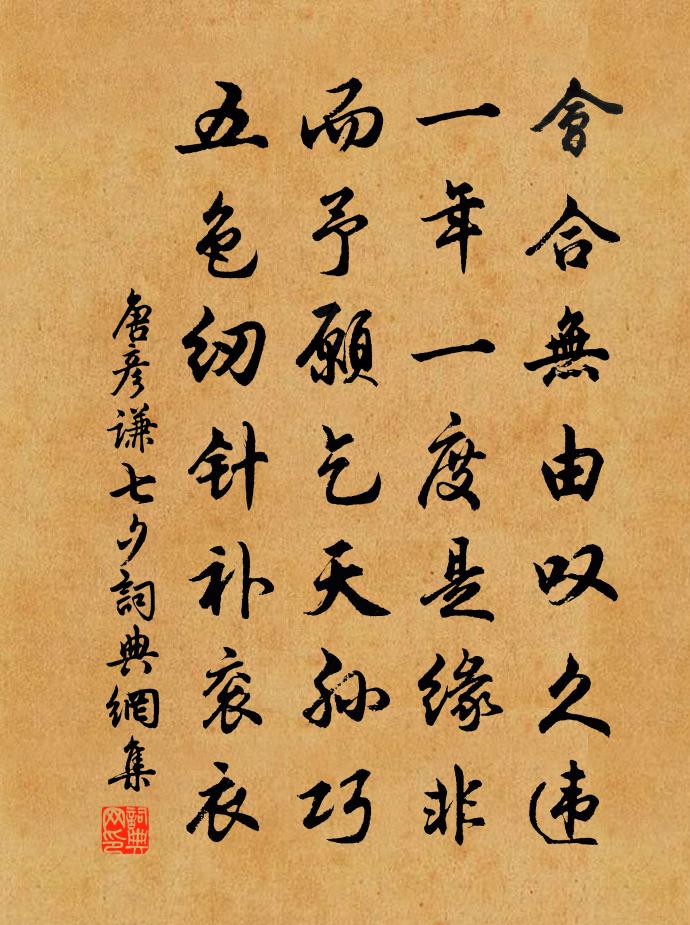 會合無由叹久违
一年一度是缘非
而予願乞天孙巧
五色纫针补衮衣
唐彦谦七夕詞典網集
詞典网印